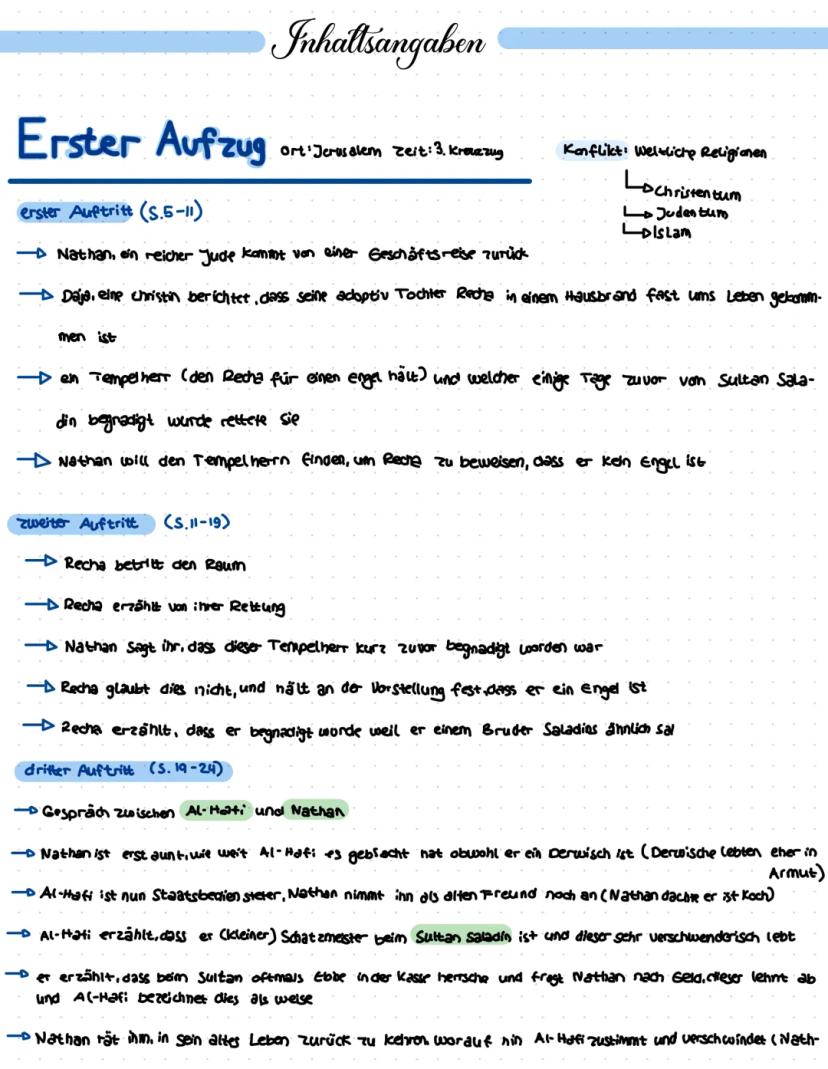 Inhaltsangaben
Erster Aufzug Ort: Jerusalem Zeit: 3. Kreuzzug
Konflikt: Weltliche Religionen
Christentum
Judentum
Islam
erster Auftritt (S.5-11)
Nathan, ein reicher Jude kommt von einer Geschäftsreise zurück
Daja, eine Christin berichtet, dass seine adoptiv Tochter Recha in einem Hausbrand fast ums Leben gekomm-
men ist
ein Tempelherr (den Recha für einen Engel hält) und welcher einige Tage zuvor von Sultan Sala-
din begnadigt wurde rettete sie
Nathan will den Tempelherrn finden, um Recha zu beweisen, dass er kein Engel ist
zweiter Auftritt (S.11-19)
Recha betritt den Raum
Recha erzählt von ihrer Rettung
Nathan sagt ihr, dass dieser Tempelherr kurz zuvor begnadigt worden war
Recha glaubt dies nicht, und hält an der Vorstellung fest, dass er ein Engel ist
Recha erzählt, dass er begnadigt wurde weil er einem Bruder Saladins ähnlich sal
dritter Auftritt (S. 19-24)
Gespräch zwischen Al-Hafi und Nathan
Nathan ist erstaunt, wie weit Al-Hafi es gebracht hat obwohl er ein Derwisch ist (Derwische lebten eher in
Armut)
Al-Hafi ist nun Staatsbediensteter, Nathan nimmt ihn als alten Freund noch an (Nathan dachte er ist Koch)
Al-Hafi erzählt, dass er (kleiner) Schatzmeister beim Sultan Saladin ist und dieser sehr verschwenderisch lebt
er erzählt, dass beim Sultan oftmals Ebbe in der Kasse herrsche und fragt Nathan nach Geld, dieser lehnt ab
und Al-Hafi bezeichnet dies als weise
Nathan rät ihm, in sein altes Leben zurück zu kehren worauf hin Al-Hafi zustimmt und verschwindet (Nath-